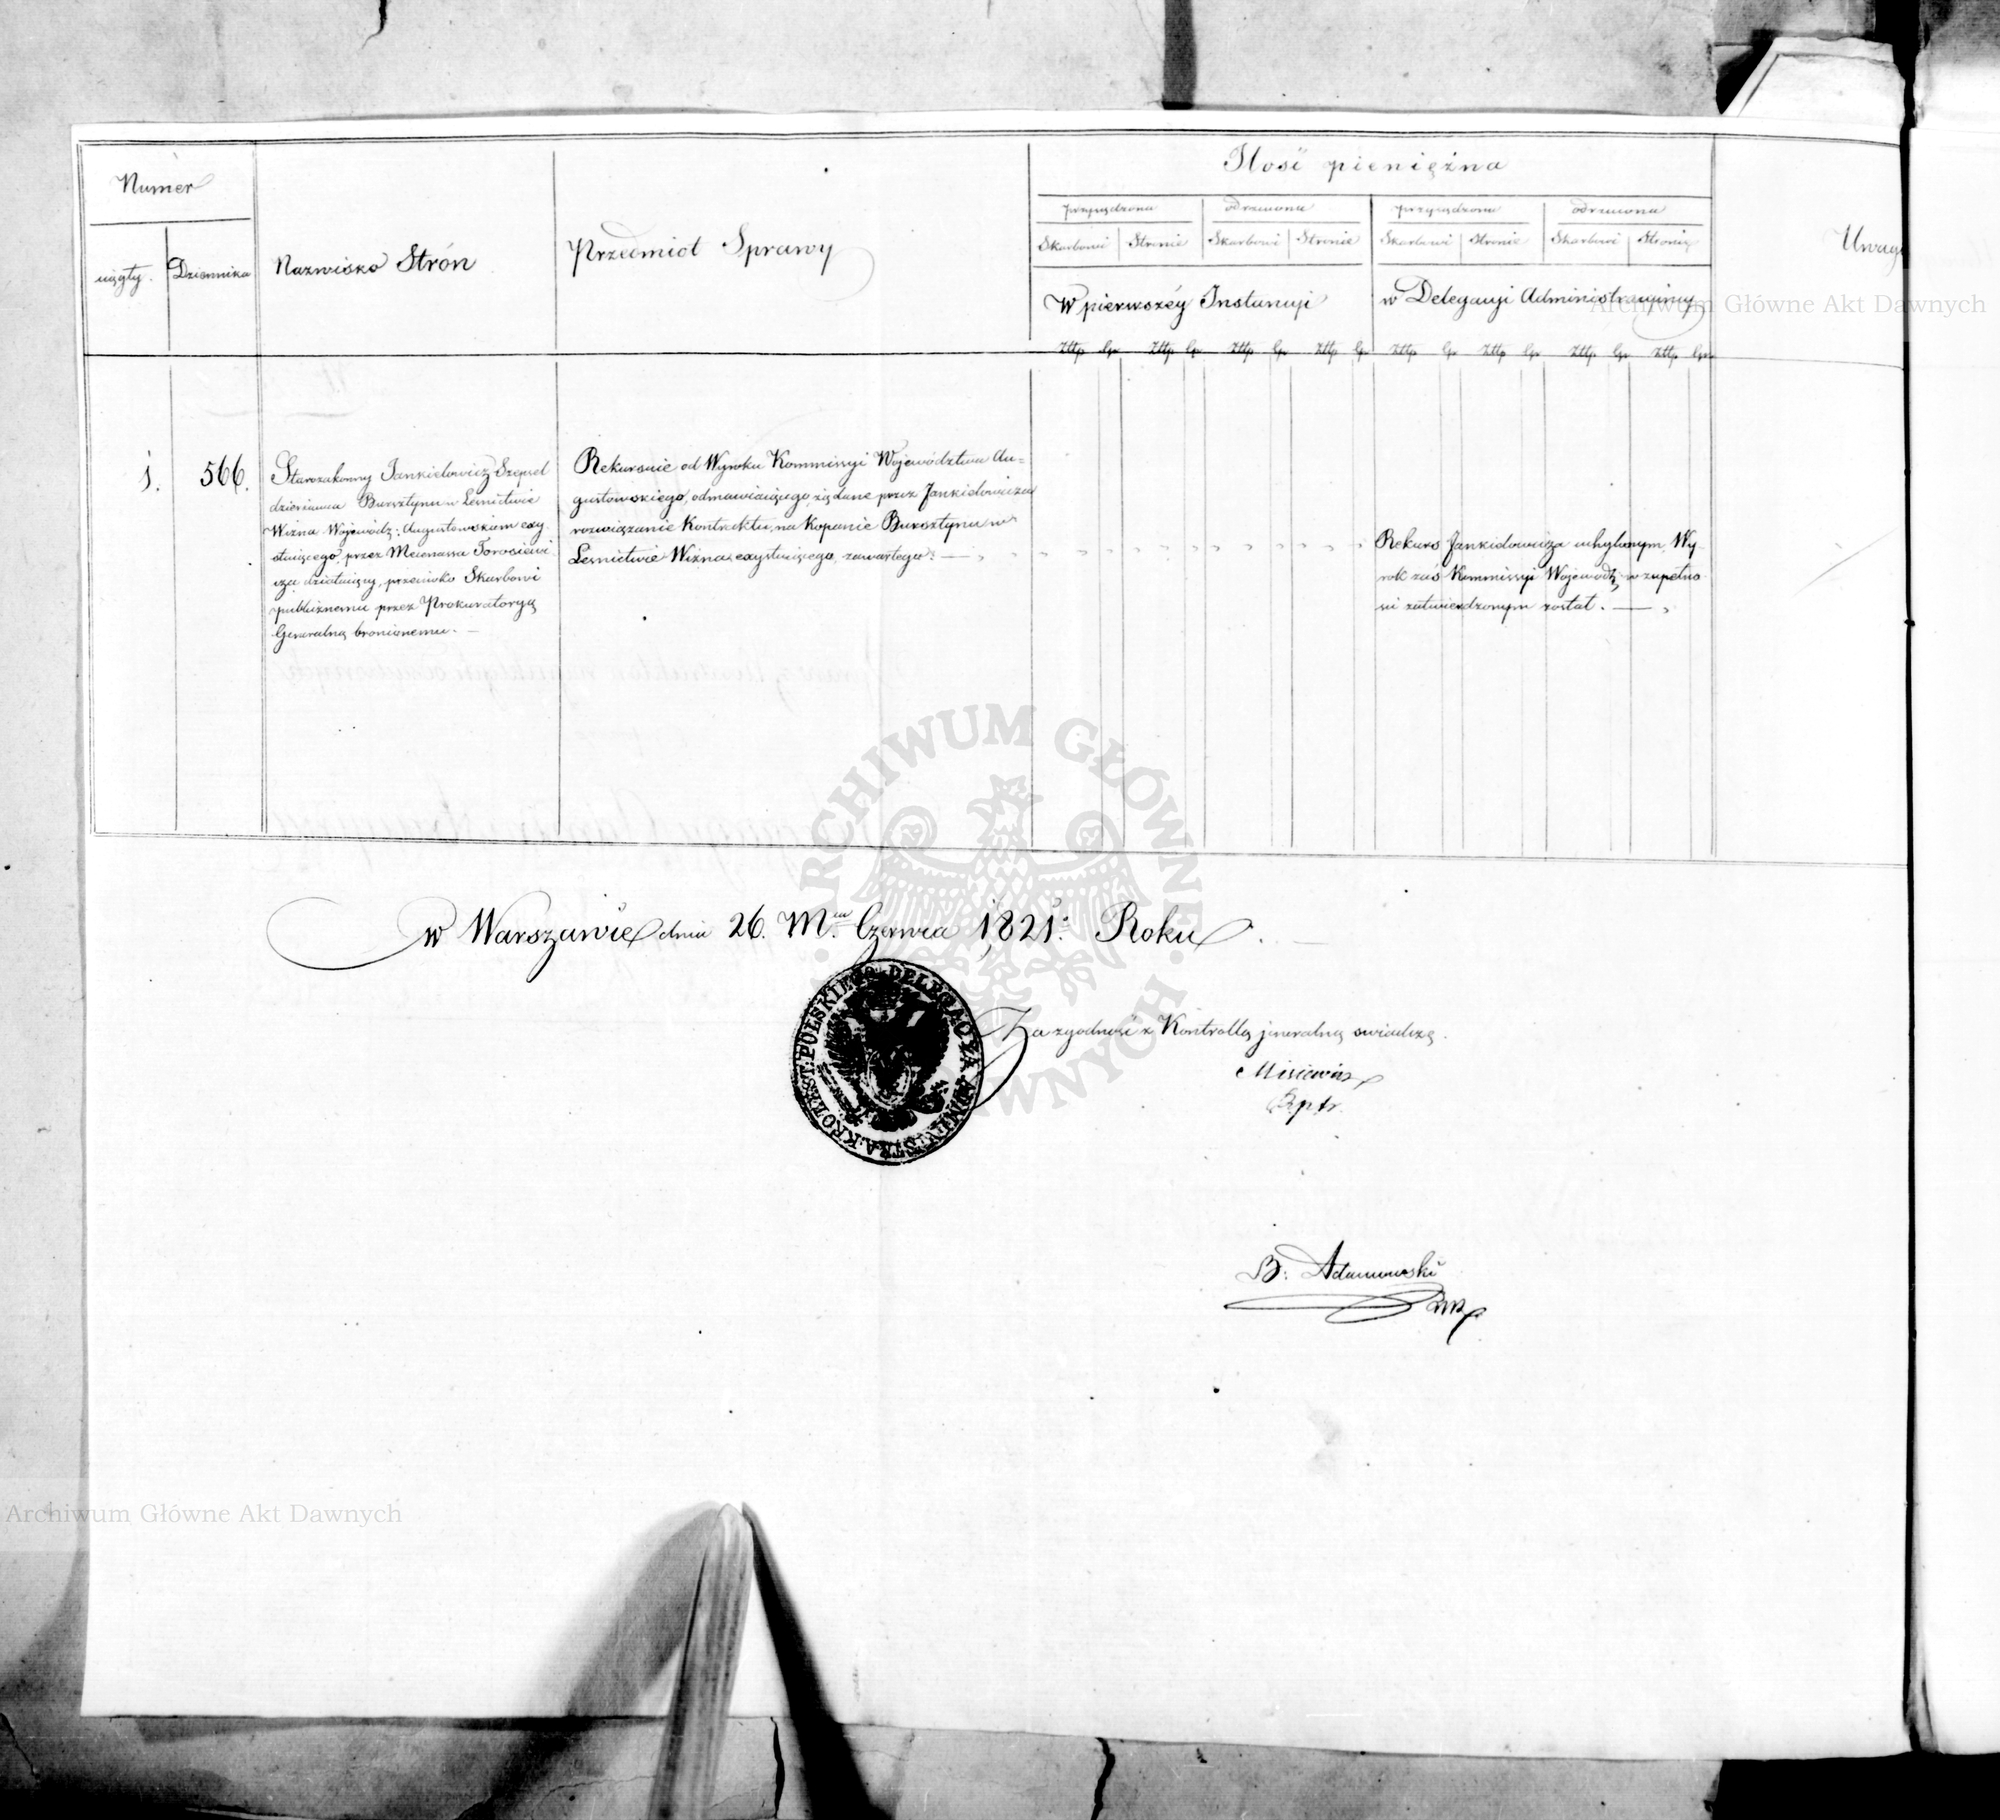 Numer
ciągły.
Dziennika
Nazwisko Strón
Przedmiot Sprawy
Ilość pieniężna
przysądzona
odmówiona
przysądzona
odmówiona
Skarbowi
Stronie
Skarbowi
Stronie
Skarbowi
Stronie
Skarbowi
Stronie
W pierwszéy Instancyi
w Delegacyi Administracyiney
Złtp gr Złtp gr Złtp gr Złtp gr Złtp gr Złtp gr Złtp gr Złtp gr
Uwagi
1.
566.
Starozakonny Jankielowicz Szepsel
dzierżawca Bursztynu w Leśnictwie
Wizna Wojewódz: Augustowskiem exy-
stuiącego, przez Mecenassa Torosiewi
cza działaiący, przeciwko Skarbowi
publicznemu przez Prokuratoryą
Generalną bronionemu. —
Rekursuie od Wyroku Kommissyi Województwa Au=
gustowskiego, odmawiaiącego żądane przez Jankielowicza
rozwiązanie Kontraktu, na Kopanie Bursztynu w
Leśnictwie Wizna exystuiącego, zawartego. —
Rekurs Jankielowicza uchylonym, Wy-
rok zaś Kommissyi Wojewódz, w zupełno
ści zatwierdzonym został. —
w Warszawie dnia 26. Mca Czerwca 1821. Roku
KRÓLEST: POLSKIEGO DELEGACYIA ADMINISTRA.
Za zgodność z Kontrollą jeneralną świadczę.
Misiewicz
B: Adamowski
Archiwum Główne Akt Dawnych
ARCHIWUM GŁÓWNE AKT DAWNYCH
Archiwum Główne Akt Dawnych